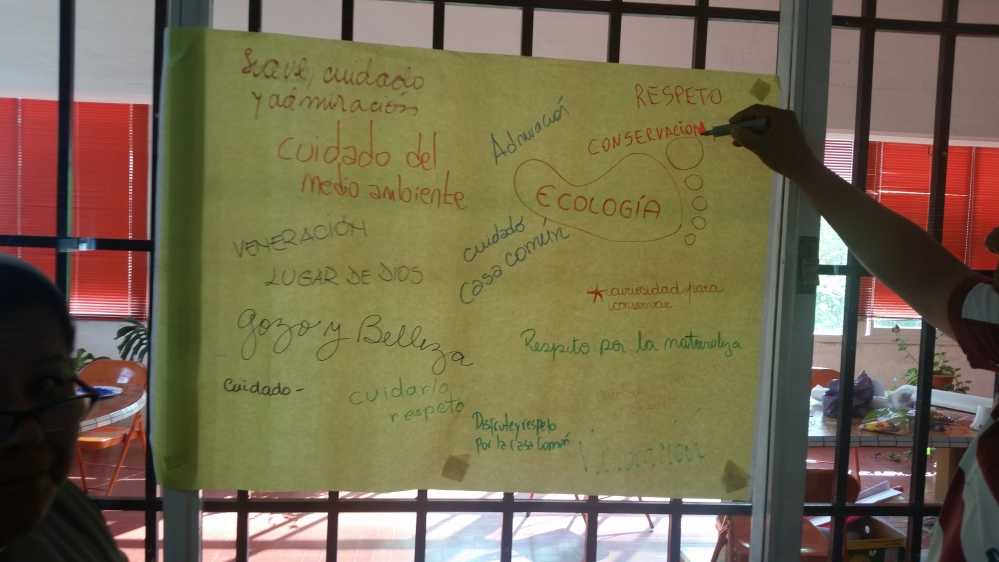 Suave, cuidado
y admiración
Cuidado del
medio ambiente
VENERACIÓN
LUGAR DE DIOS
Gozo y Belleza
Cuidado -
cuidarlo
respeto
Admiración
RESPETO
CONSERVACION
ECOLOGÍA
cuidado
casa común
*curiosidad para
conservar
Respeto por la naturaleza
Disfrute y respeto
Por la Casa Común